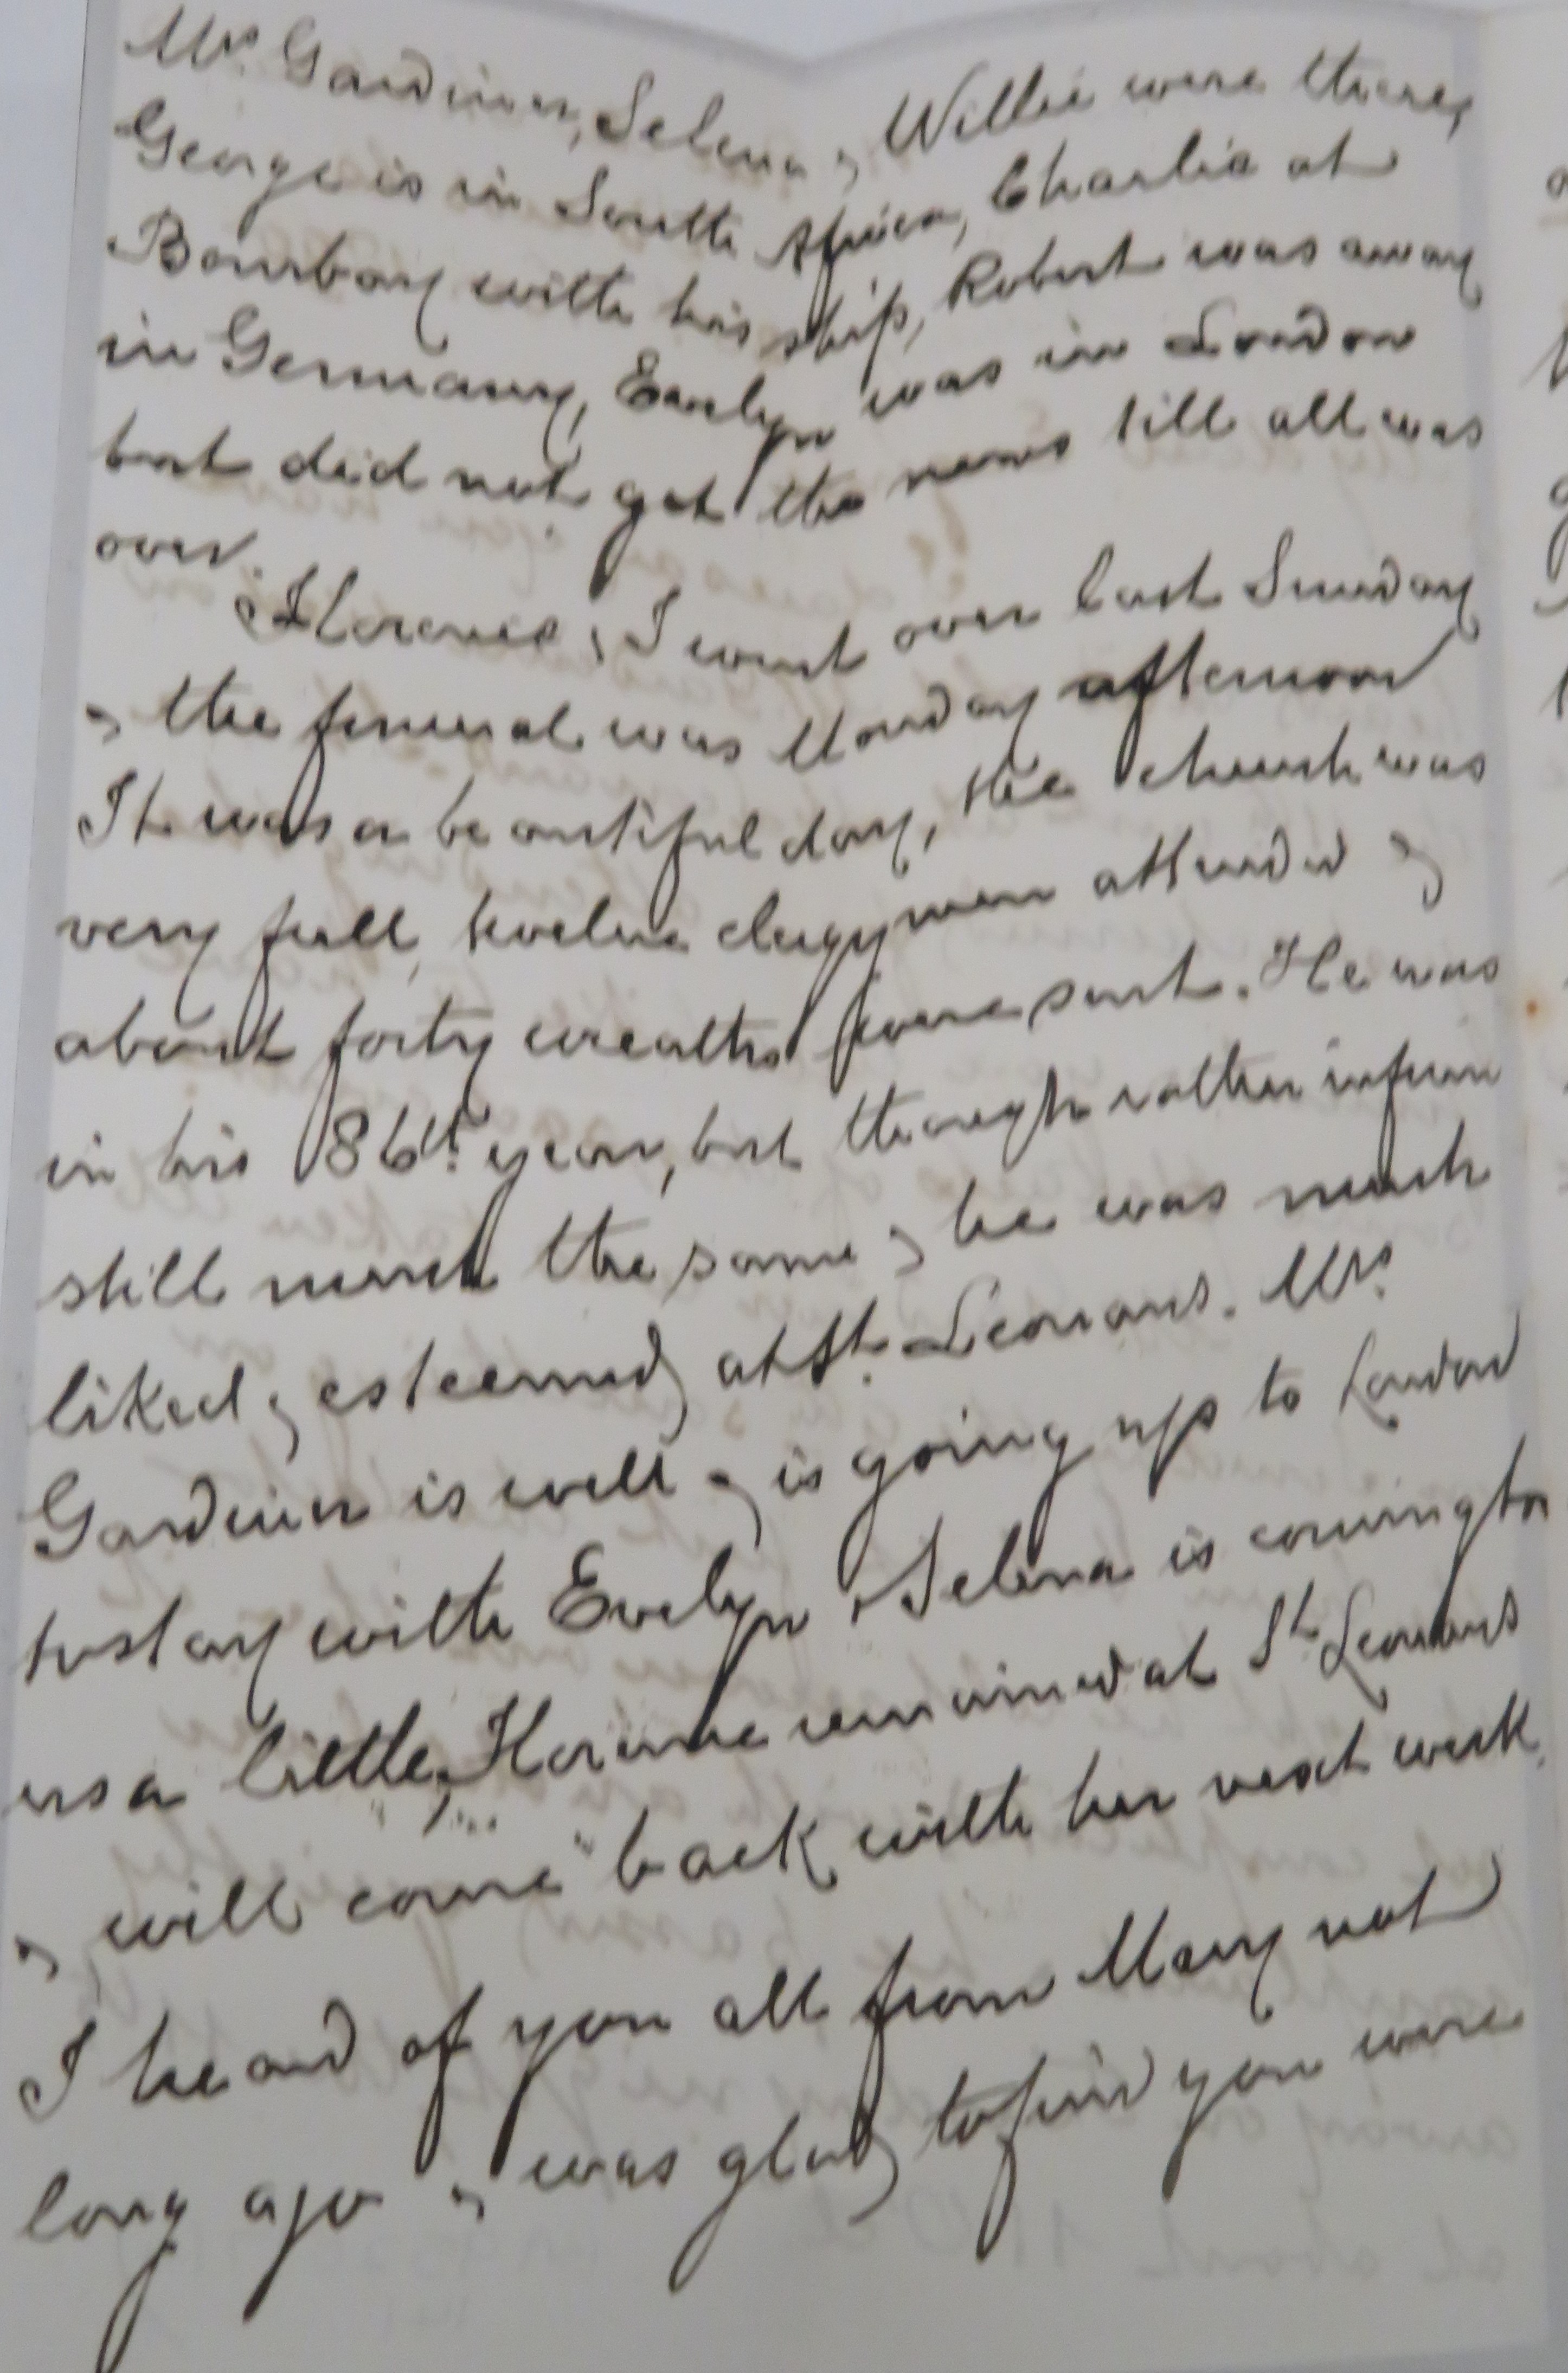 Mrs Gardiner, Selena & Willie were there,
George is in South Africa, Charlie at
Bombay with his ship, Robert was away
in Germany, Evelyn was in London
but did not get the news till all was
over.
Florence & I went over last Sunday
& the funeral was Monday afternoon
It was a beautiful day, the church was
very full, twelve clergymen attended &
about forty wreaths were sent. He was
in his 86th year, but though rather infirm
still much the same & he was much
liked & esteemed at St. Leonards. Mrs
Gardiner is well & is going up to London
to stay with Evelyn & Selena is coming to
us a little, Florence remained at St Leonards
& will come back with her next week.
I heard of you all from Mary not
long ago & was glad to find you were